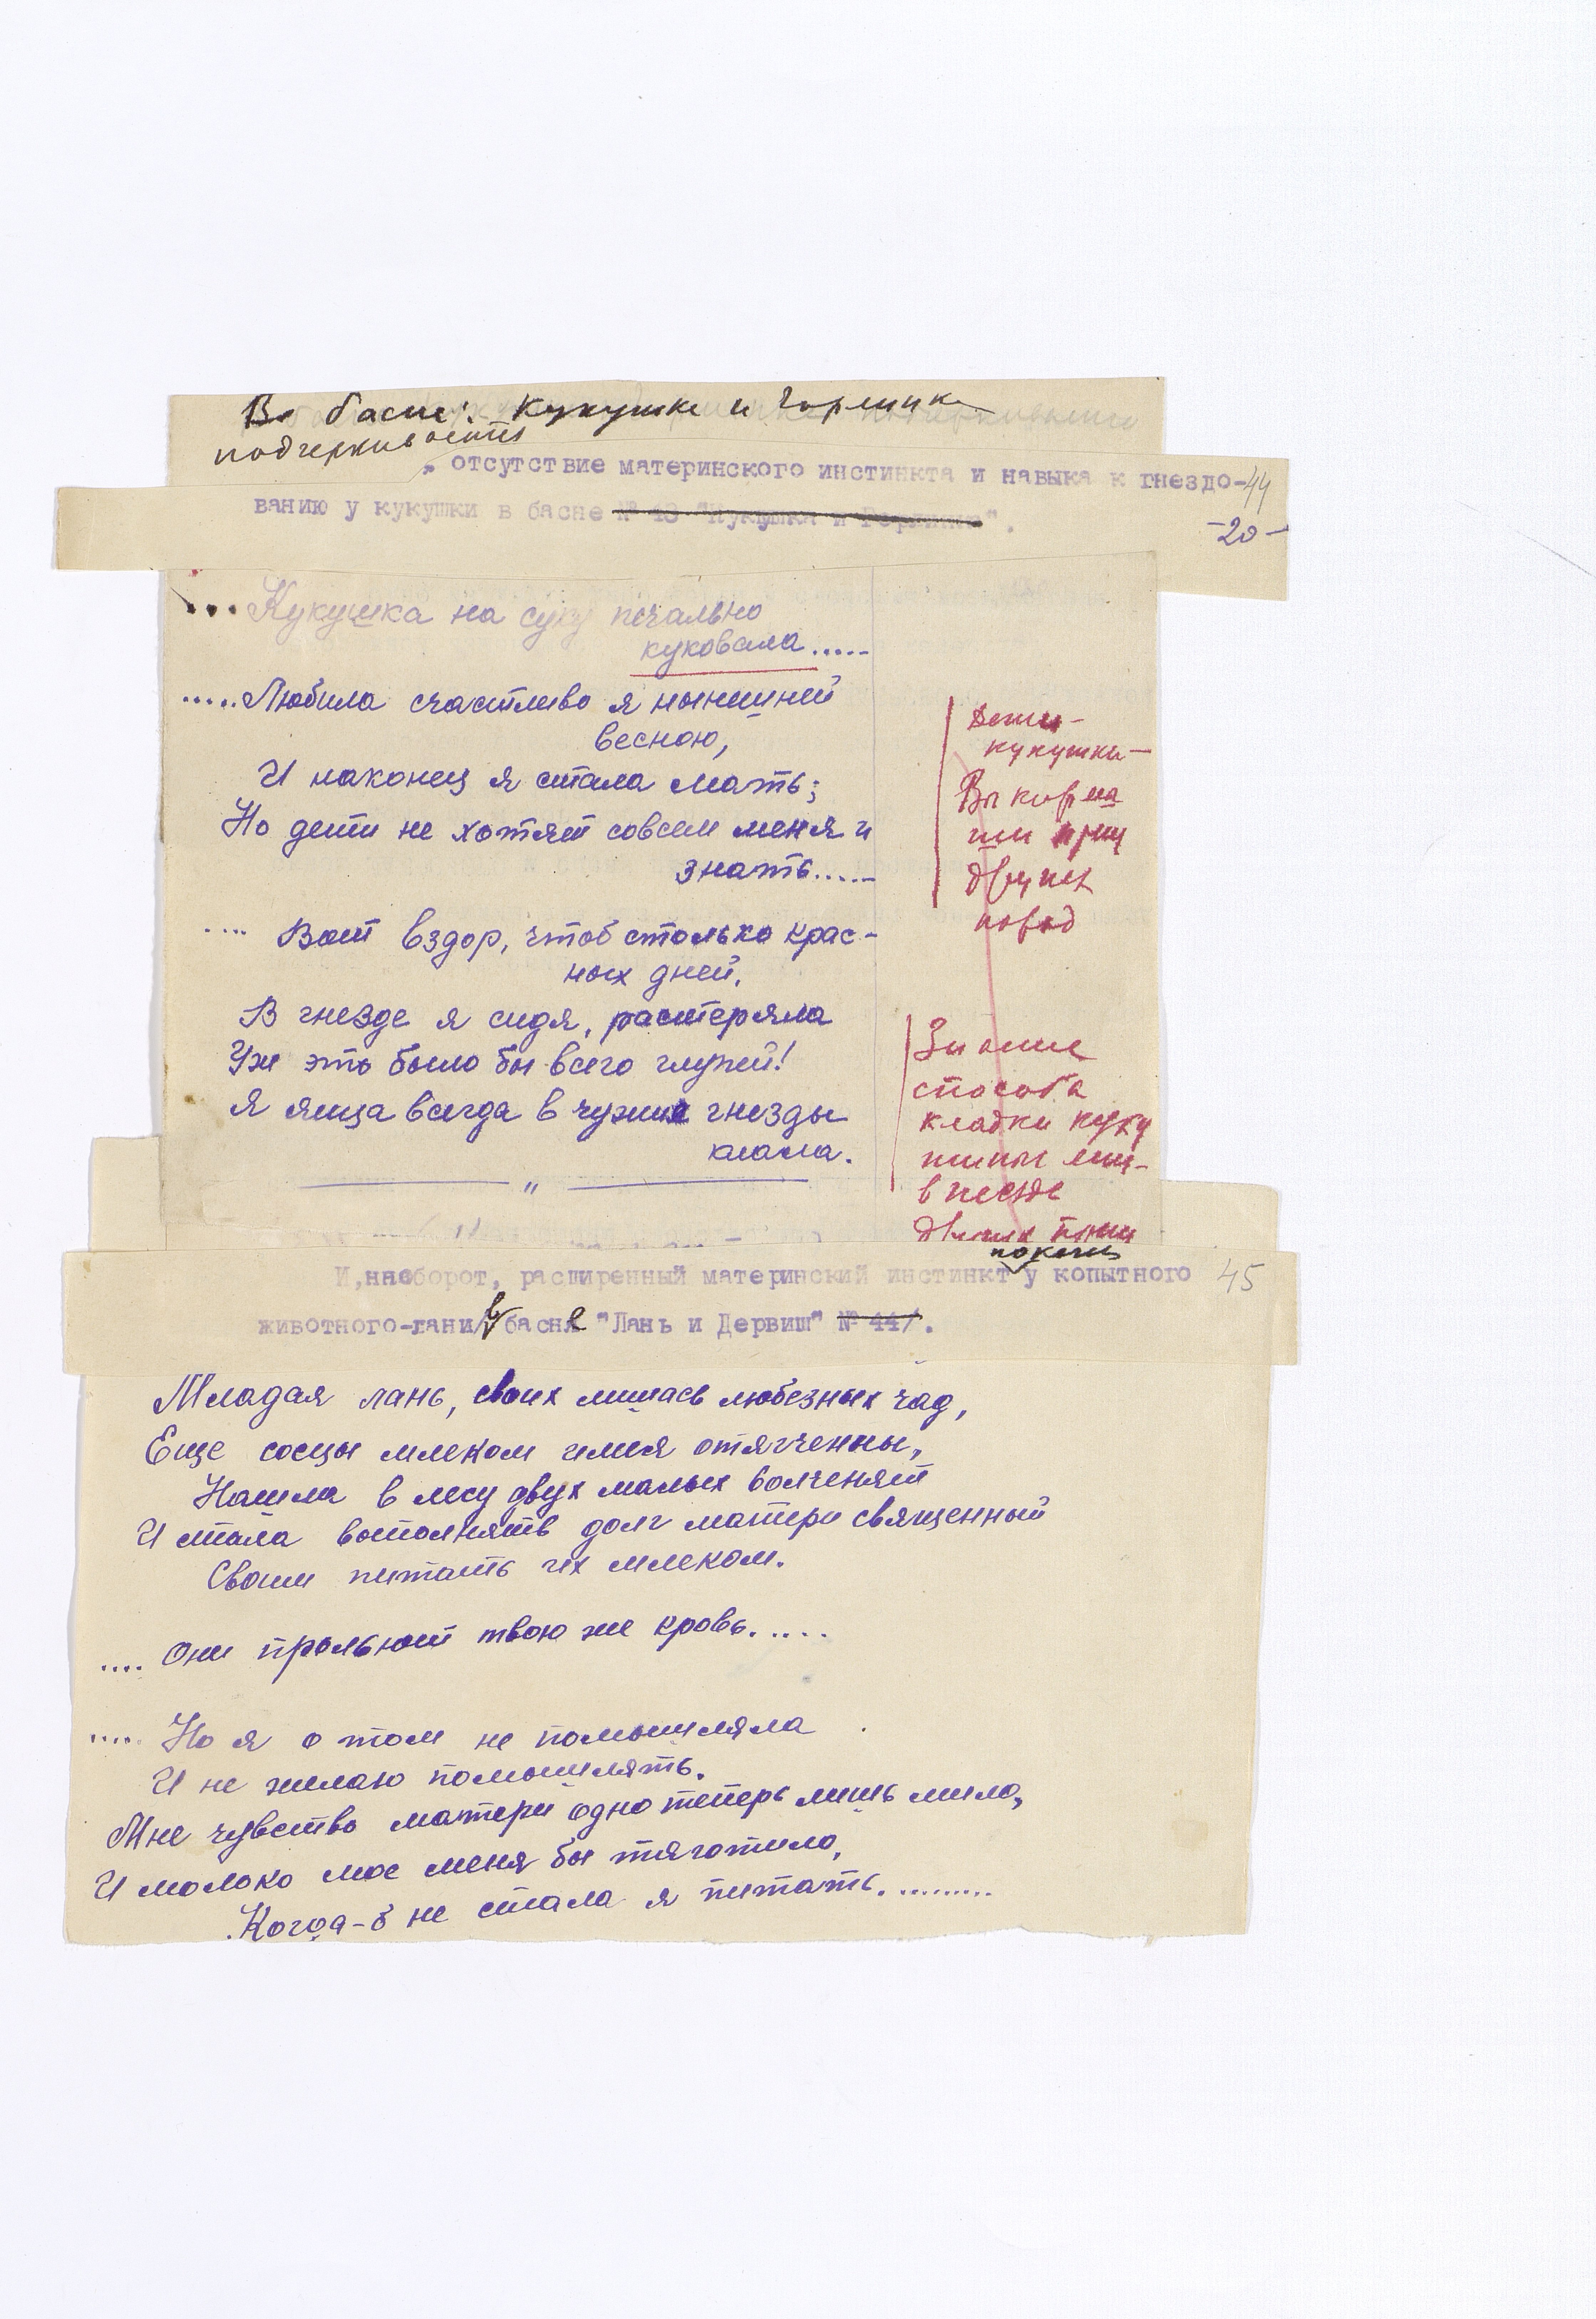 В басне: Кукушка и Горлинка
подчеркивается
отсутствие материнского инстинкта и навыка к гнездо-
44
ванию у кукушки в басне № 43 "Кукушка и Горлинка".
-20-
... Кукушка на суку печально
куковала.....
..... Любила счастливо я нынешней
весною,
И наконец я стала мать;
Но дети не хотят совсем меня и
знать.....
.... Вот вздор, чтоб столько крас-
ных дней,
В гнезде я сидя, растеряла
Уж это было бы всего глупей!
Я яица всегда в чужие гнезды
клала.
"
Дети-
кукушки-
Выкорма
других
пород
Знание
способа
кладки куку
в гнезде
других птиц
И, наоборот, расширенный материнский инстинкт у копытного
45
животного-лани в басне "Лань и Дервиш" № 44/.
Младая лань, своих лишась любезных чад,
Еще сосцы млеком имея отягченны,
Нашла в лесу двух малых волченят
И стала выполнять долг матери священный
Своим питать их млеком.
.... Они прольют твою же кровь.....
.... Но я о том не помышляла
И не желаю помышлять.
Мне чувство матери одно теперь лишь мило,
И молоко мое меня бы тяготило,
Когда-б не стала я питать..........